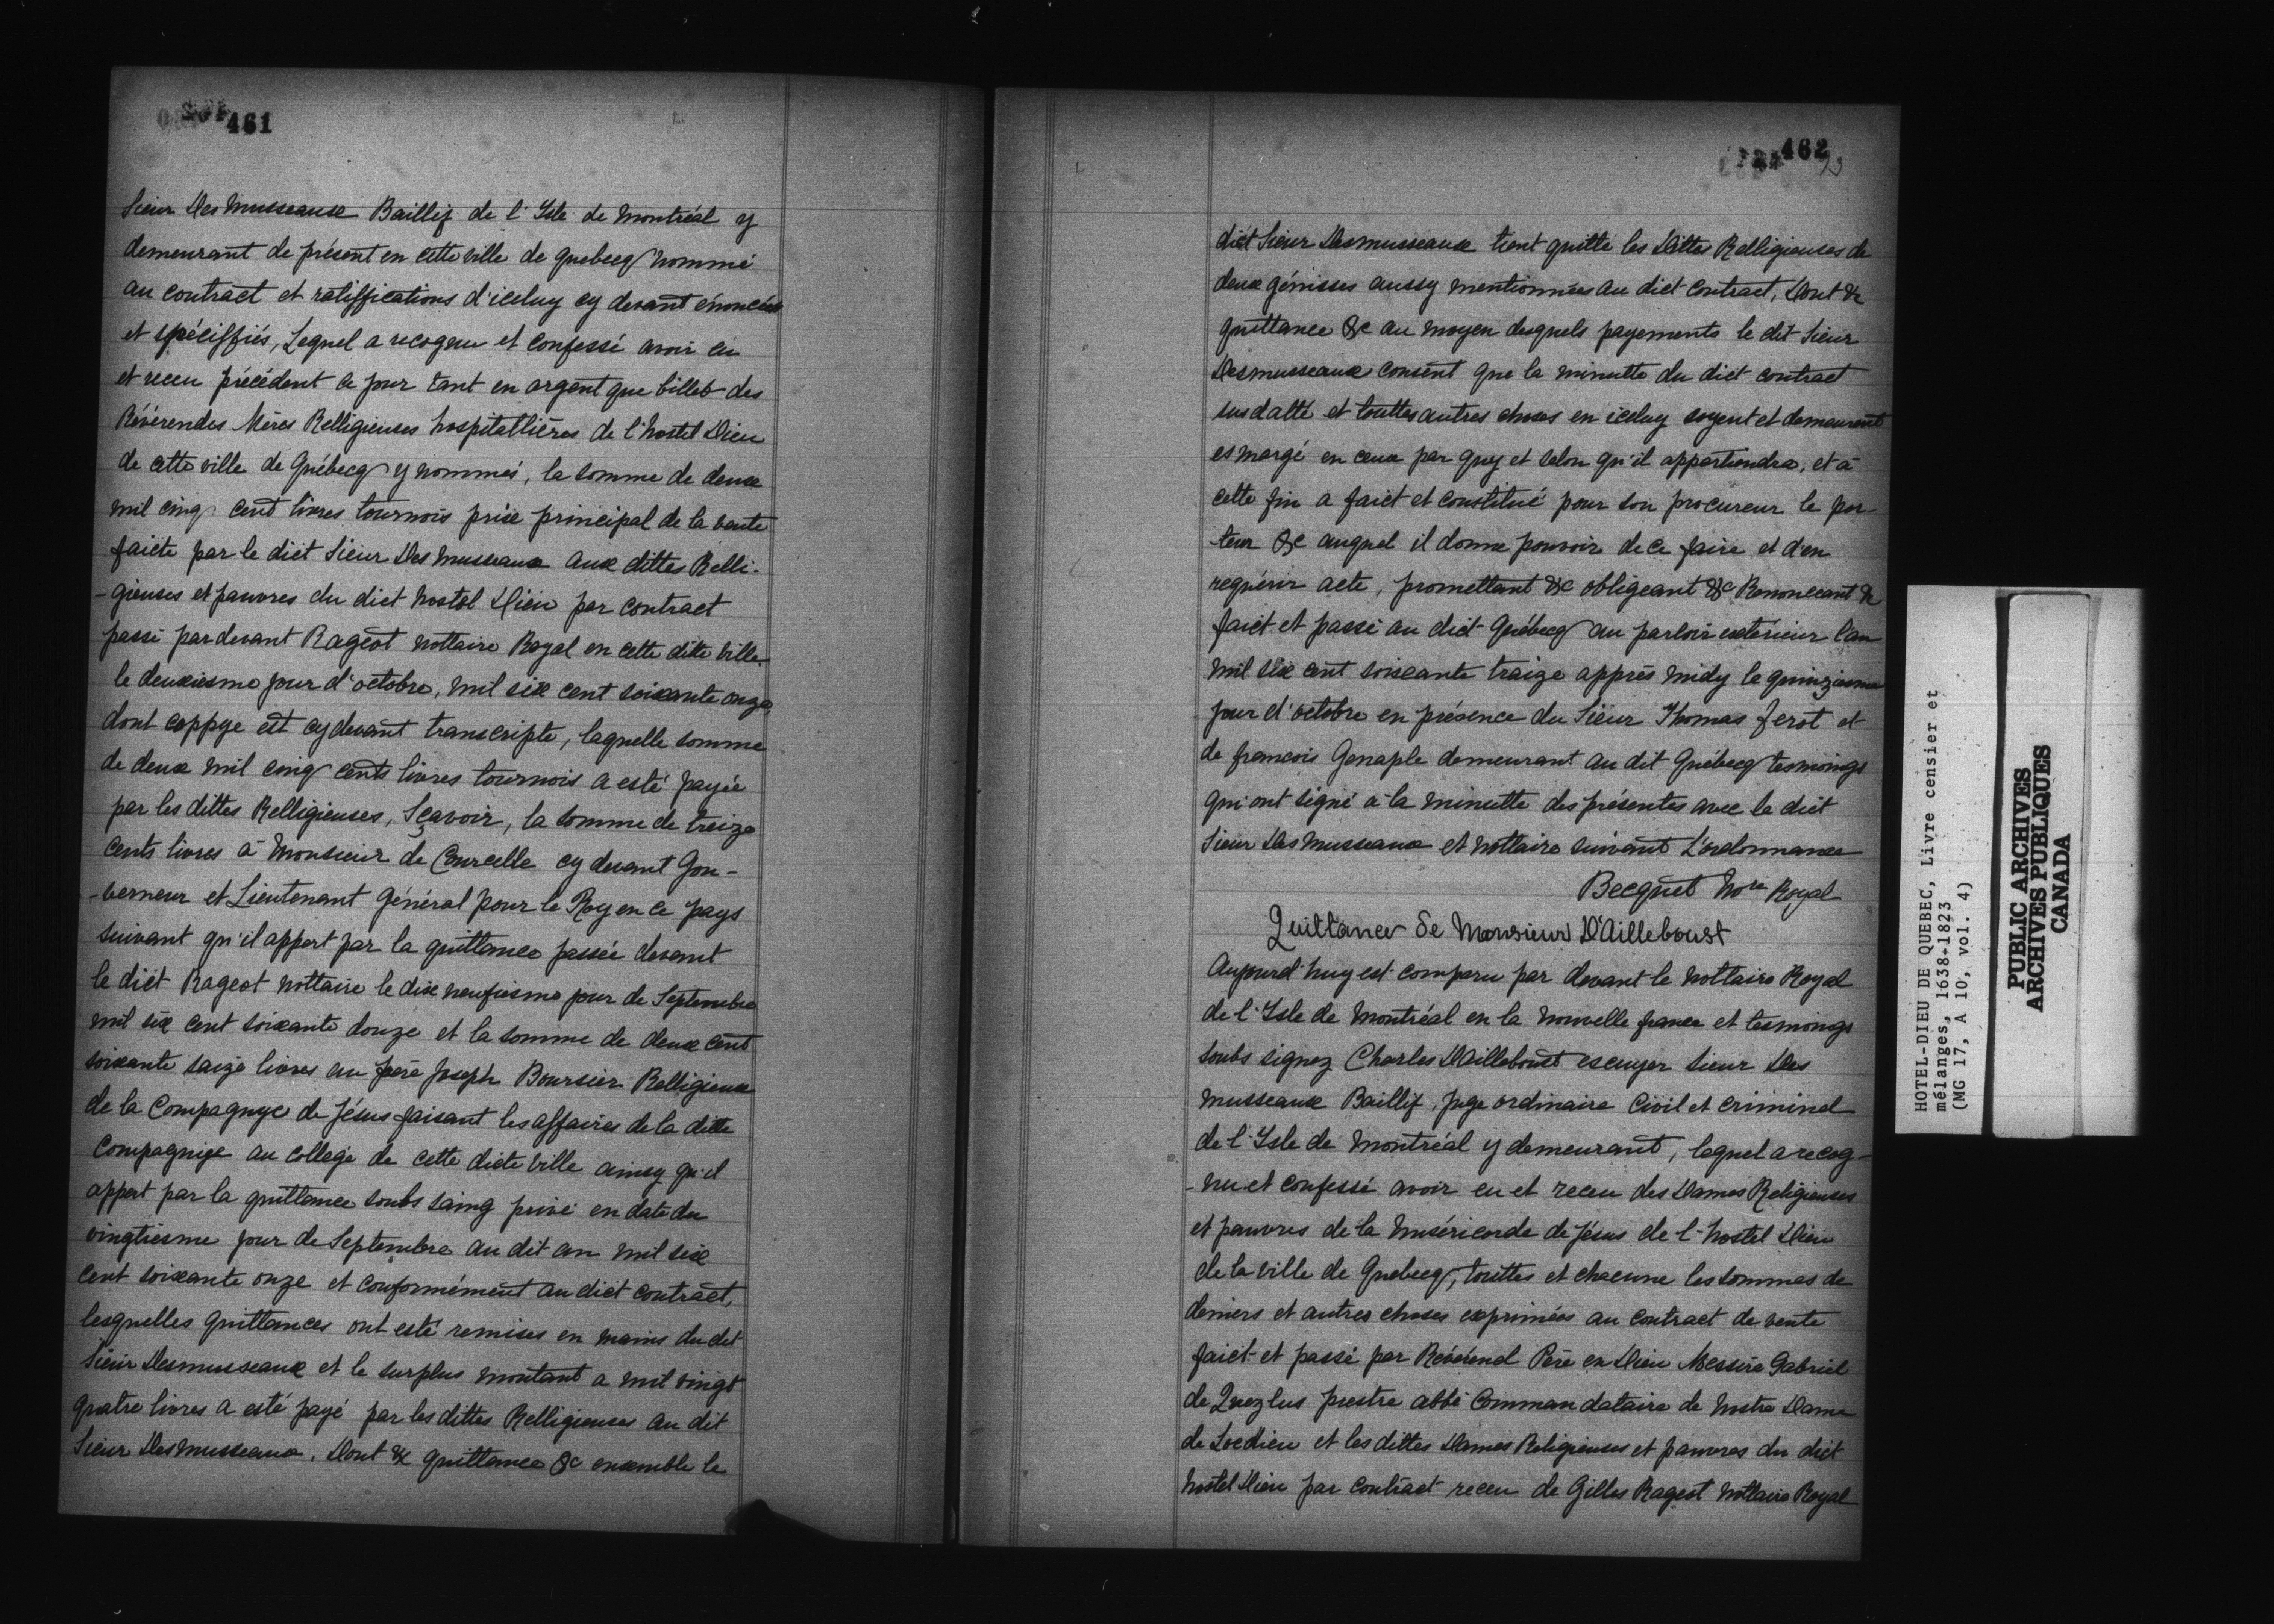 461
Sieur Des Musseaux Baillif de l'Isle de Montréal y
demeurant de présent en cette ville de quebecq nommé
au contract et ratiffications d'iceluy cy devant énoncés
et spéciffiés, Lequel a recognu et confessé avoir eu
et receu précédent ce jour tant en argent que billets des
Révérendes Mères Relligieuses hospitallières de l'hostel Dieu
de cette ville de Québecq y nommés, la somme de deux
mil cinq cent livres tournois prix principal de la vente
faicte par le dict Sieur Des Musseaux aux dittes Relli-
-gieuses et pauvres du dict hostel Dieu par contract
passé pardevant Rageot nottaire Royal en cette dite ville
le deuxiesme jour d'octobre, mil six cent soixante onze,
dont coppye est cydevant transcripte, laquelle somme
de deux mil cinq cents livres tournois a esté payée
par les dittes Relligieuses, Sçavoir, la somme de treize
cents livres à Monsieur de Courcelle cy devant Gou-
-verneur et Lieutenant Général pour le Roy en ce pays
suivant qu'il appert par la quittance passée devant
le dict Rageot nottaire le dix neufiesme jour de Septembre
mil six cent soixante douze et la somme de deux cent
soixante saize livres au frère Joseph Boursier Relligieux
de la Compagnye de Jésus faisant les affaires de la ditte
Compagnye au college de cette dicte ville ainsy qu'il
appert par la quittance soubs saing privé en date du
vingtiesme jour de Septembre au dit an mil six
cent soixante onze et conformément au dict contract,
lesquelles quittances ont esté remises en mains du dit
Sieur Desmusseaux et le surplus montant a mil vingt
quatre livres a esté payé par les dittes Relligieuses au dit
Sieur Des Musseaux. Dont &c quittance &c ensemble le
462
dict Sieur Desmusseaux tient quitte les Dittes Relligieuses de
deux génisses aussy mentionnées au dict contract, Dont &c
quittance &c au moyen desquels payements le dit Sieur
Desmusseaux consent que la minutte du dict contract
susdatté et touttes autres choses en iceluy soyent et demeurent
esmargé en ceux par quy et selon qu'il appartiendra, et à
cette fin a faict et constitué pour son procureur le por-
-teur &c auquel il donne pouvoir de ce faire et d'en
requérir acte, promettant &c obligeant &c Renonceant &c
faict et passé au dict Québecq au parloir extérieur l'an
mil six cent soixante traize apprès midy le quinziesme
jour d'octobre en présence du Sieur Thomas ferot et
de francois Genaple demeurant au dit Québecq tesmoings
qui ont signé à la minutte des présentes avec le dict
Sieur Des Musseaux et nottaire suivant L'ordonnance
Becquet Nore Royal
Quittance de Monsieur D'Ailleboust
Aujourd'huy est comparu par devant le nottaire Royal
de l'Isle de Montréal en la nouvelle france et tesmoings
soubs signez Charles Dailleboust escuyer sieur Des
musseaux Baillif, juge ordinaire Civil et criminel
de l'Isle de Montréal y demeurant, lequel a recog-
-nu et confessé avoir eu et receu des Dames Religieuses
et pauvres de la Miséricorde de Jésus de l'hostel Dieu
de la ville de Quebecq, touttes et chacune les sommes de
deniers et autres choses exprimées au contract de vente
faict et passé par Révérend Père en Dieu Messire Gabriel
de Queylus prestre abbé Commandataire de Nostre Dame
de Locdieu et les dittes Dames Religieuses et pauvres du dict
hostel Dieu par contract receu de Gilles Rageot Nottaire Royal
HOTEL-DIEU DE QUEBEC, Livre censier et
mélanges, 1638-1823
(MG 17, A 10, vol. 4)
PUBLIC ARCHIVES
ARCHIVES PUBLIQUES
CANADA